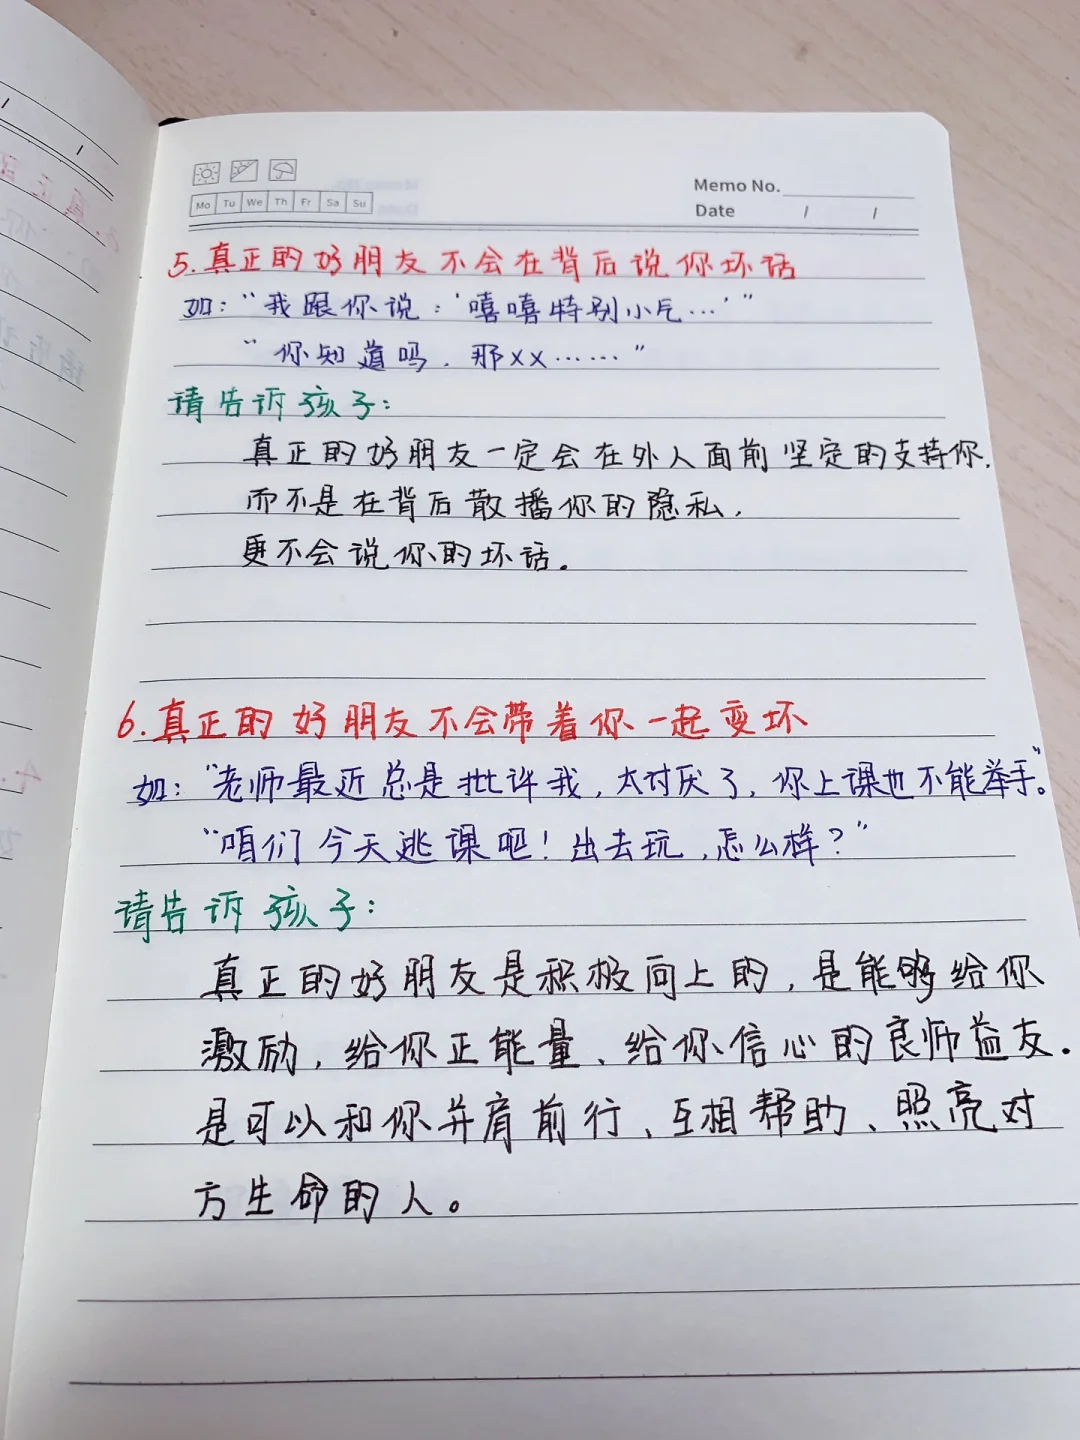 Mo Tu We Th Fr Sa Su
Memo No.
Date / /
5.真正的好朋友不会在背后说你坏话
如:“我跟你说:‘嘻嘻特别小气…’”
“你知道吗,那XX……”
请告诉孩子:
真正的好朋友一定会在外人面前坚定的支持你,
而不是在背后散播你的隐私,
更不会说你的坏话。
6.真正的好朋友不会带着你一起变坏
如:“老师最近总是批评我,太讨厌了,你上课也不能举手。”
“咱们今天逃课吧!出去玩,怎么样?”
请告诉孩子:
真正的好朋友是积极向上的,是能够给你
激励,给你正能量、给你信心的良师益友.
是可以和你并肩前行、互相帮助、照亮对
方生命的人。